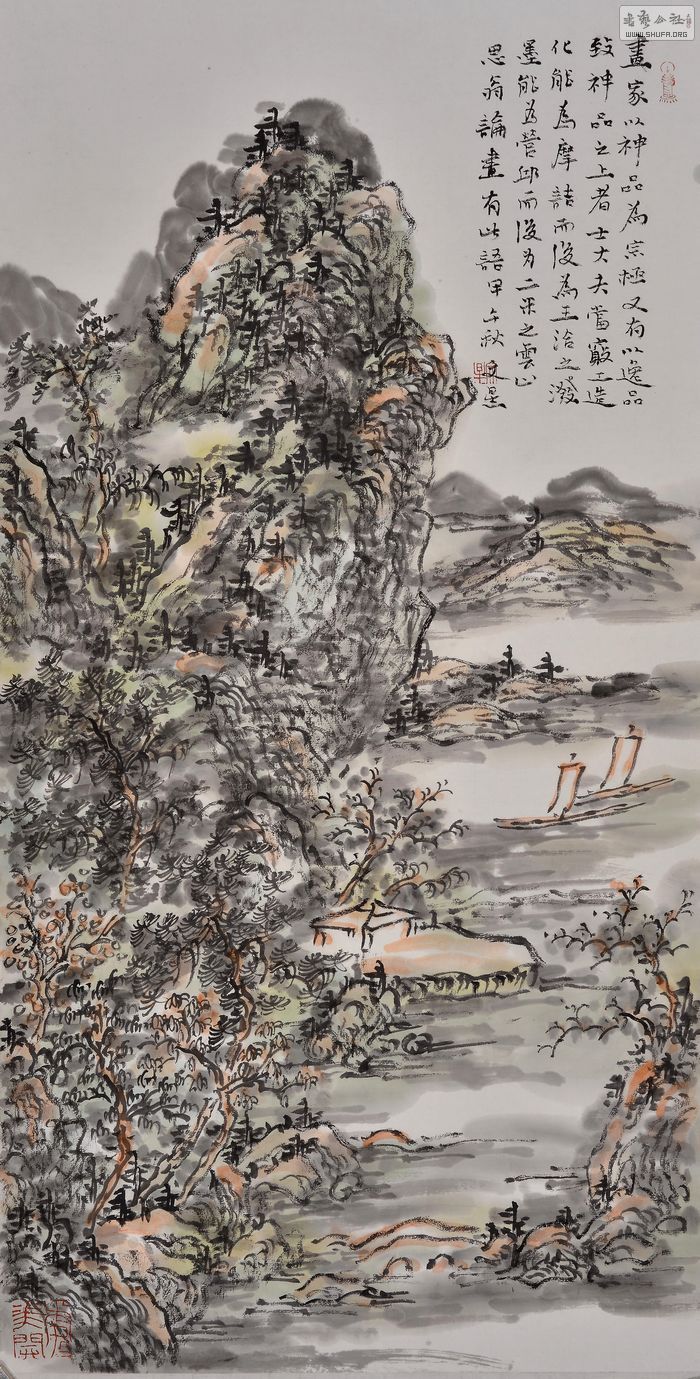 畫家以神品為宗極又有以逸品
致神品之上者士大夫當窮工造
化能為摩詰而後為王洽之潑
墨能為營邱而後為二米之雲山
思翁論畫有此語甲午秋文墨
書藝公社
WWW.SHUFA.ORG